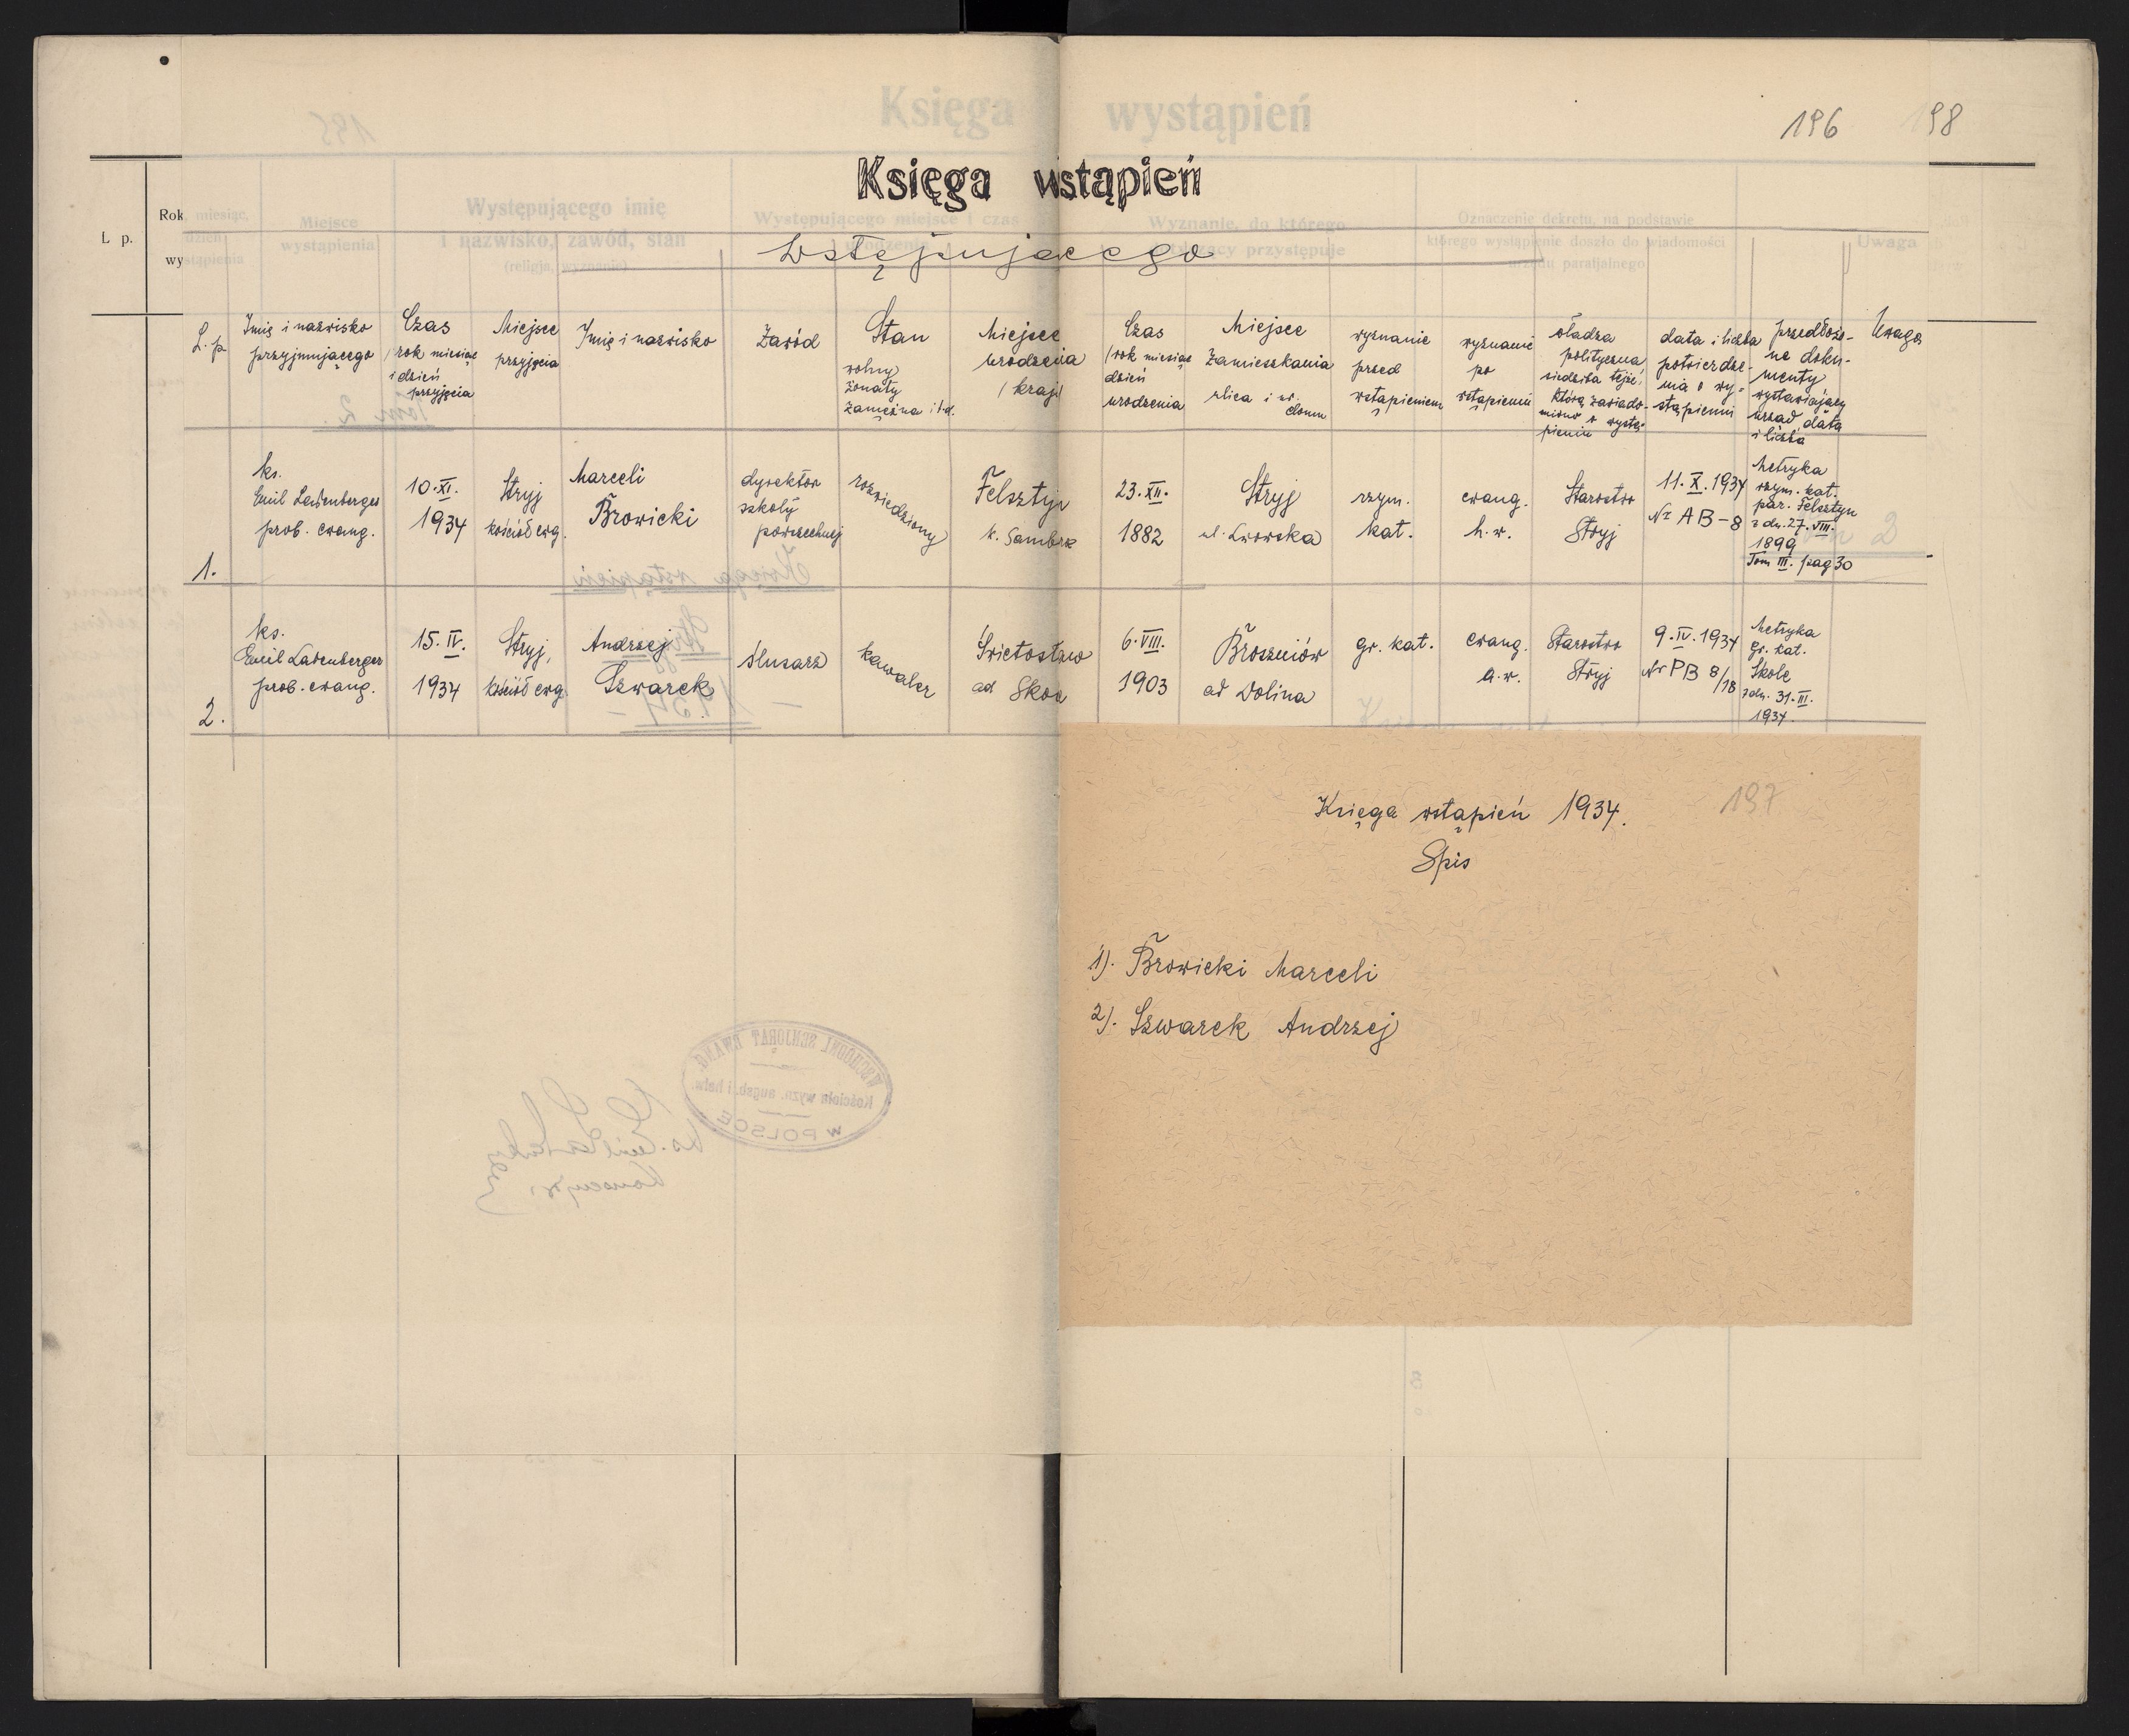 Księga wystąpień
196 198
Księga wstąpień
L. p.
Rok miesiąc,
dzień
wystąpienia
Miejsce
wystąpienia
Występującego imię
i nazwisko, zawód, stan
(religja, wyznanie)
Występującego miejsce i czas
urodzenia
Wyznanie, do którego
przystępuje
Oznaczenie dekretu, na podstawie
którego wystąpienie doszło do wiadomości
urzędu parafjalnego
Uwaga
wstępującego
L. p.
Imię i nazwisko
przyjmującego
Czas
/rok miesiąc
i dzień
przyjęcia
Miejsce
przyjęcia
Imię i nazwisko
Zawód
Stan
wolny
żonaty
zamężna i t.d.
Miejsce
urodzenia
/kraj/
Czas
/rok miesiąc
dzień
urodzenia
Miejsce
zamieszkania
ulica i nr.
domu
wyznanie
przed
wstąpieniem
wyznanie
po
wstąpieniu
władza
polityczna
siedziba tejże,
którą zawiado-
miono o wystą-
pieniu
data i liczba
potwierdze-
nia o wy-
stąpieniu
przedłożo-
ne doku-
menty
wystawiający
urząd, data
i liczba
Uwaga
1.
ks.
Emil Ladenberger
prob. ewang.
10.XI.
1934
Stryj
kościół ewg.
Marceli
Browicki
dyrektor
szkoły
powszechnej
rozwiedziony
Felsztyn
k. Sambora
23.XII.
1882
Stryj
ul. Lwowska
rzym.
kat.
ewang.
h. w.
Starostwo
Stryj
11.X.1934
Nr AB-8
Metryka
rzym. kat.
par. Felsztyn
z dn. 27.VIII.
1899
Tom III. pag 30
2.
ks.
Emil Ladenberger
prob. ewang.
15.IV.
1934
Stryj,
kościół ewg.
Andrzej
Szwarek
ślusarz
kawaler
Świetosław
ad Skole
6.VIII.
1903
Broszniów
ad Dolina
gr. kat.
ewang.
a. w.
Starostwo
Stryj
9.IV.1934
Nr PB 8/18
Metryka
gr. kat.
Skole
z dn. 31.III.
1934.
Księga wstąpień 1934.
197
Spis
1). Browicki Marceli
2). Szwarek Andrzej
WSCHODNI SENJORAT EWANG.
Kościoła wyzn. augsb. i helw.
w POLSCE